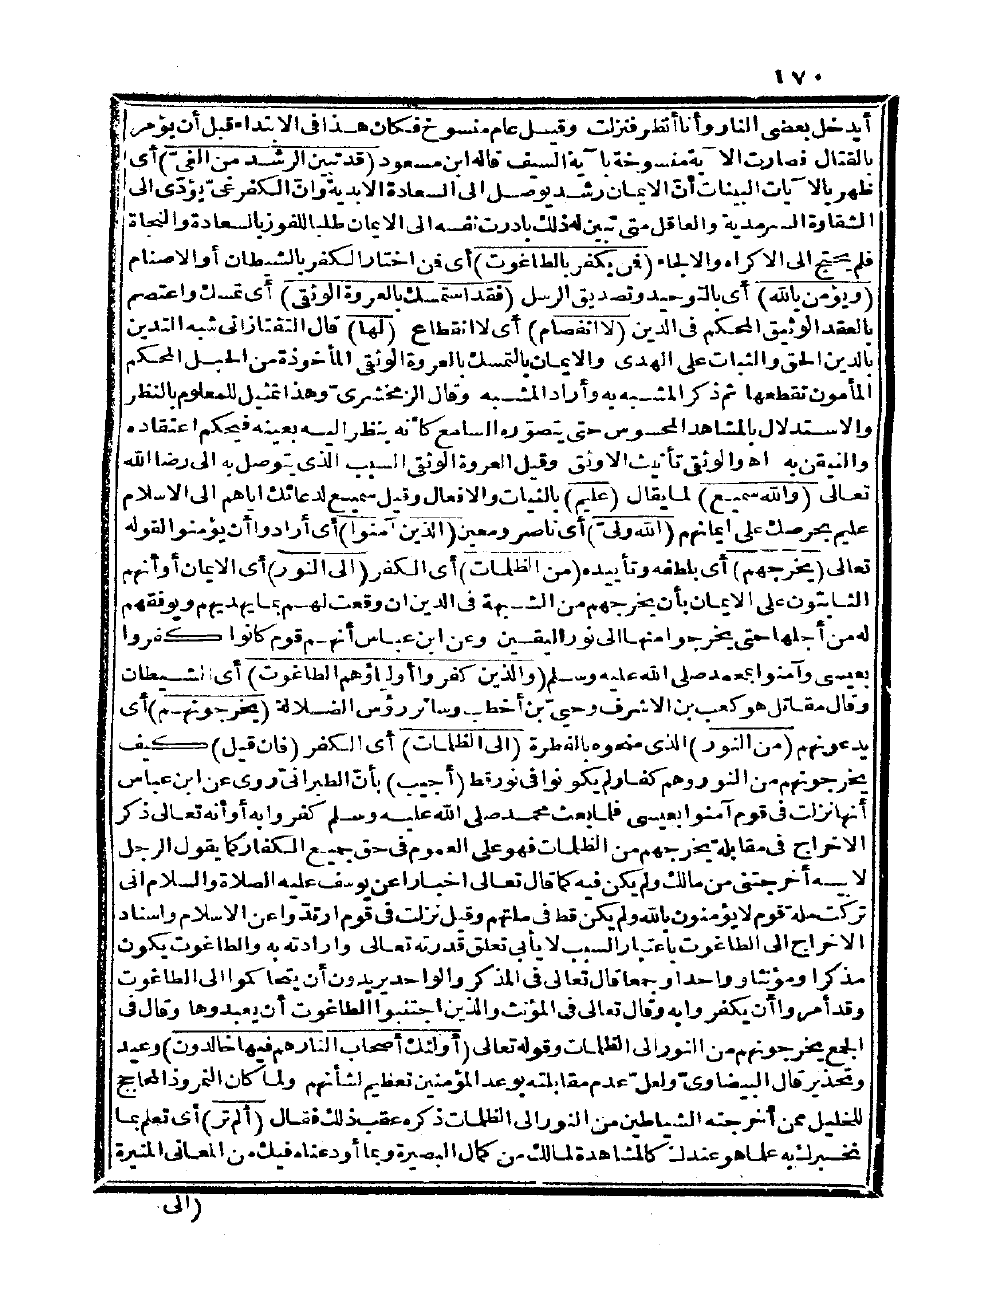 ١٧٠
أيدخل بعضي النار وأنا أنظر فنزلت وقيل عام منسوخ فكان هذا في الابتداء قبل أن يؤمر
بالقتال فصارت الآية منسوخة بآية السيف قاله ابن مسعود (قد تبين الرشد من الغيّ) أي
ظهر بالآيات البينات أنّ الايمان رشد يوصل الى السعادة الابدية وانّ الكفر غيّ يؤدّي الى
الشقاوة السرمدية والعاقل متى تبين له ذلك بادرت نفسه الى الايمان طلبا للفوز بالسعادة والنجاة
فلم يحتج الى الاكراه والالجاء (فمن يكفر بالطاغوت) أي فمن اختار الكفر بالشيطان أو الاصنام
(ويؤمن بالله) أي بالتوحيد وتصديق الرسل (فقد استمسك بالعروة الوثقى) أي تمسك واعتصم
بالعقد الوثيق المحكم في الدين (لا انفصام) أي لا انقطاع (لها) قال التفتازاني شبه التدين
بالدين الحق والثبات على الهدى والايمان بالتمسك بالعروة الوثقى المأخوذة من الحبل المحكم
المأمون تقطعها ثم ذكر المشبه به وأراد المشبه وقال الزمخشريّ وهذا تمثيل للمعلوم بالنظر
والاستدلال بالمشاهد المحسوس حتى يتصوّره السامع كأنه ينظر اليه بعينه فيحكم اعتقاده
والتيقن به اه والوثقى تأنيث الاوثق وقيل العروة الوثقى السبب الذي يتوصل به الى رضا الله
تعالى (والله سميع) لما يقال (عليم) بالنيات والافعال وقيل سميع لدعائك اياهم الى الاسلام
عليم بحرصك على ايمانهم (الله وليّ) أي ناصر ومعين (الذين آمنوا) أي أرادوا أن يؤمنوا لقوله
تعالى (يخرجهم) أي بلطفه وتأييده (من الظلمات) أي الكفر (الى النور) أي الايمان أو أنهم
الثابتون على الايمان بأن يخرجهم من الشبهة في الدين ان وقعت لهم بما يهديهم ويوفقهم
له من أجلها حتى يخرجوا منها الى نور اليقين وعن ابن عباس أنهم قوم كانوا كفروا
بعيسى وآمنوا بمحمد صلى الله عليه وسلم (والذين كفروا أولياؤهم الطاغوت) أي الشيطان
وقال مقاتل هو كعب بن الاشرف وحيي بن أخطب وسائر رؤس الضلالة (يخرجونهم) أي
يدعونهم (من النور) الذي منحوه بالفطرة (الى الظلمات) أي الكفر (فان قيل) كيف
يخرجونهم من النور وهم كفار ولم يكونوا في نور قط (أجيب) بأنّ الطبراني روى عن ابن عباس
أنها نزلت في قوم آمنوا بعيسى فلما بعث محمد صلى الله عليه وسلم كفروا به أو أنه تعالى ذكر
الاخراج في مقابلة يخرجهم من الظلمات فهو على العموم في حق جميع الكفار كما يقول الرجل
لابيه أخرجتني من مالك ولم يكن فيه كما قال تعالى اخبارا عن يوسف عليه الصلاة والسلام اني
تركت ملة قوم لا يؤمنون بالله ولم يكن قط في ملتهم وقيل نزلت في قوم ارتدوا عن الاسلام واسناد
الاخراج الى الطاغوت باعتبار السبب لا يأبى تعلق قدرته تعالى وارادته به والطاغوت يكون
مذكرا ومؤنثا وواحدا وجمعا قال تعالى في المذكر والواحد يريدون أن يتحاكموا الى الطاغوت
وقد أمروا أن يكفروا به وقال تعالى في المؤنث والذين اجتنبوا الطاغوت أن يعبدوها وقال في
الجمع يخرجونهم من النور الى الظلمات وقوله تعالى (أولئك أصحاب النار هم فيها خالدون) وعيد
وتحذير قال البيضاويّ ولعلّ عدم مقابلته بوعد المؤمنين تعظيم لشأنهم ولما كان النمروذ المحاجج
للخليل ممن أخرجته الشياطين من النور الى الظلمات ذكره عقب ذلك فقال (ألم تر) أي تعلم بما
نخبرك به علما هو عندك كالمشاهدة لمالك من كمال البصيرة وبما أودعناه فيك من المعاني المنيرة
(الى